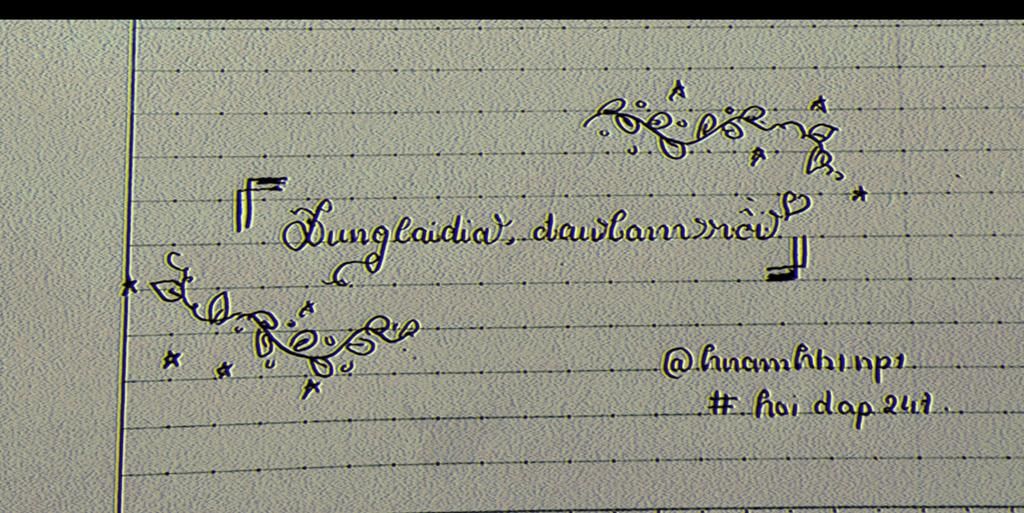 Dunglaidia, daulamrồi
# hoi dap 247.